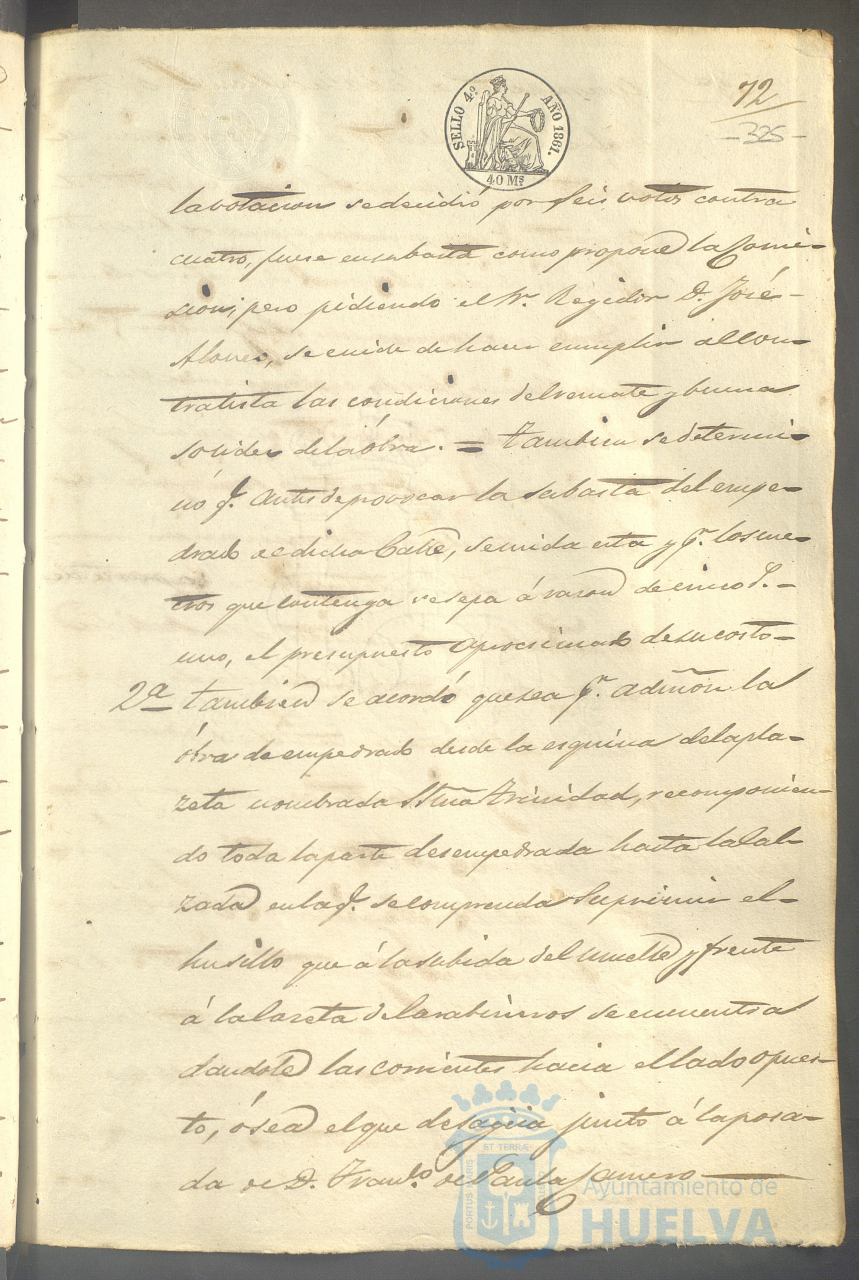 SELLO 4º AÑO 1861.
40 Ms
72
325
la votacion se decidió por seis votos contra
cuatro, fuese en subasta como propone la Comi-
sion; pero pidiendo el Sr. Regidor D. José
Alonso, se cuide de hacer cumplir al con-
tratista las condiciones del remate y buena
solides de la óbra. = Tambien se determi-
nó q. antes de provocar la subasta del empe-
drado de dicha Calle, se mida esta y pr. los me-
tros que contenga se sepa á razon de cinco
uno, el presupuesto aprocsimado de su costo-
2ª Tambien se acordó que sea pr. admon la
óbra de empedrado desde la esquina de la pla-
zeta nombrada SSma Trinidad, recomponien-
do toda la parte desempedrada hasta la Cal-
zada en la q. se comprenda Suprimir el
husillo que á la subida del muelle y frente
á la Caseta de Carabineros se encuentra
dandole las corrientes hacia el lado opues-
to, ó sea el que desagüa junto á la posa-
da de D. Franco. de Paula Camero
PORTUS MARIS ET TERRÆ
Ayuntamiento de
HUELVA